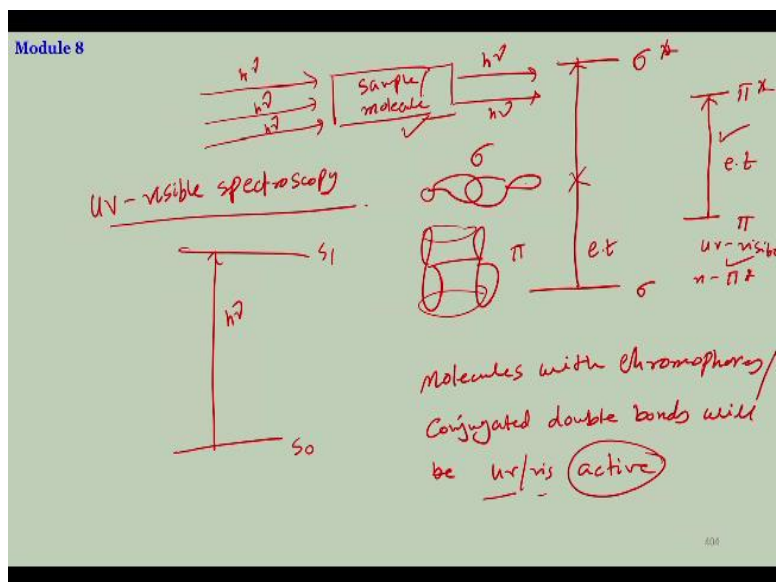 Module 8
hν
hν
hν
sample/
molecule
hν
hν
σ*
π*
e.t
π
uv-visible
n-π*
σ
π
e.t
σ
uv-visible spectroscopy
S1
hν
S0
Molecules with chromophores/
Conjugated double bonds will
be uv/vis active
404